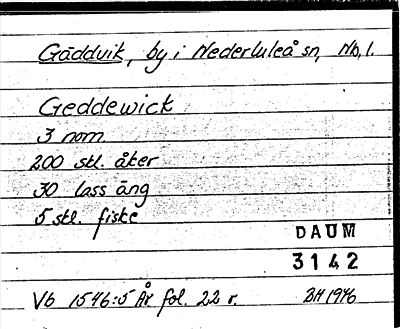 Gäddvik, by i Nederluleå sn, Nb, l.
Geddewick
3 nom.
200 skl. åker
30 lass äng
5 skl. fiske
DAUM
3142
Vb 1546:5 ÅR fol. 22 r.
BH 1976